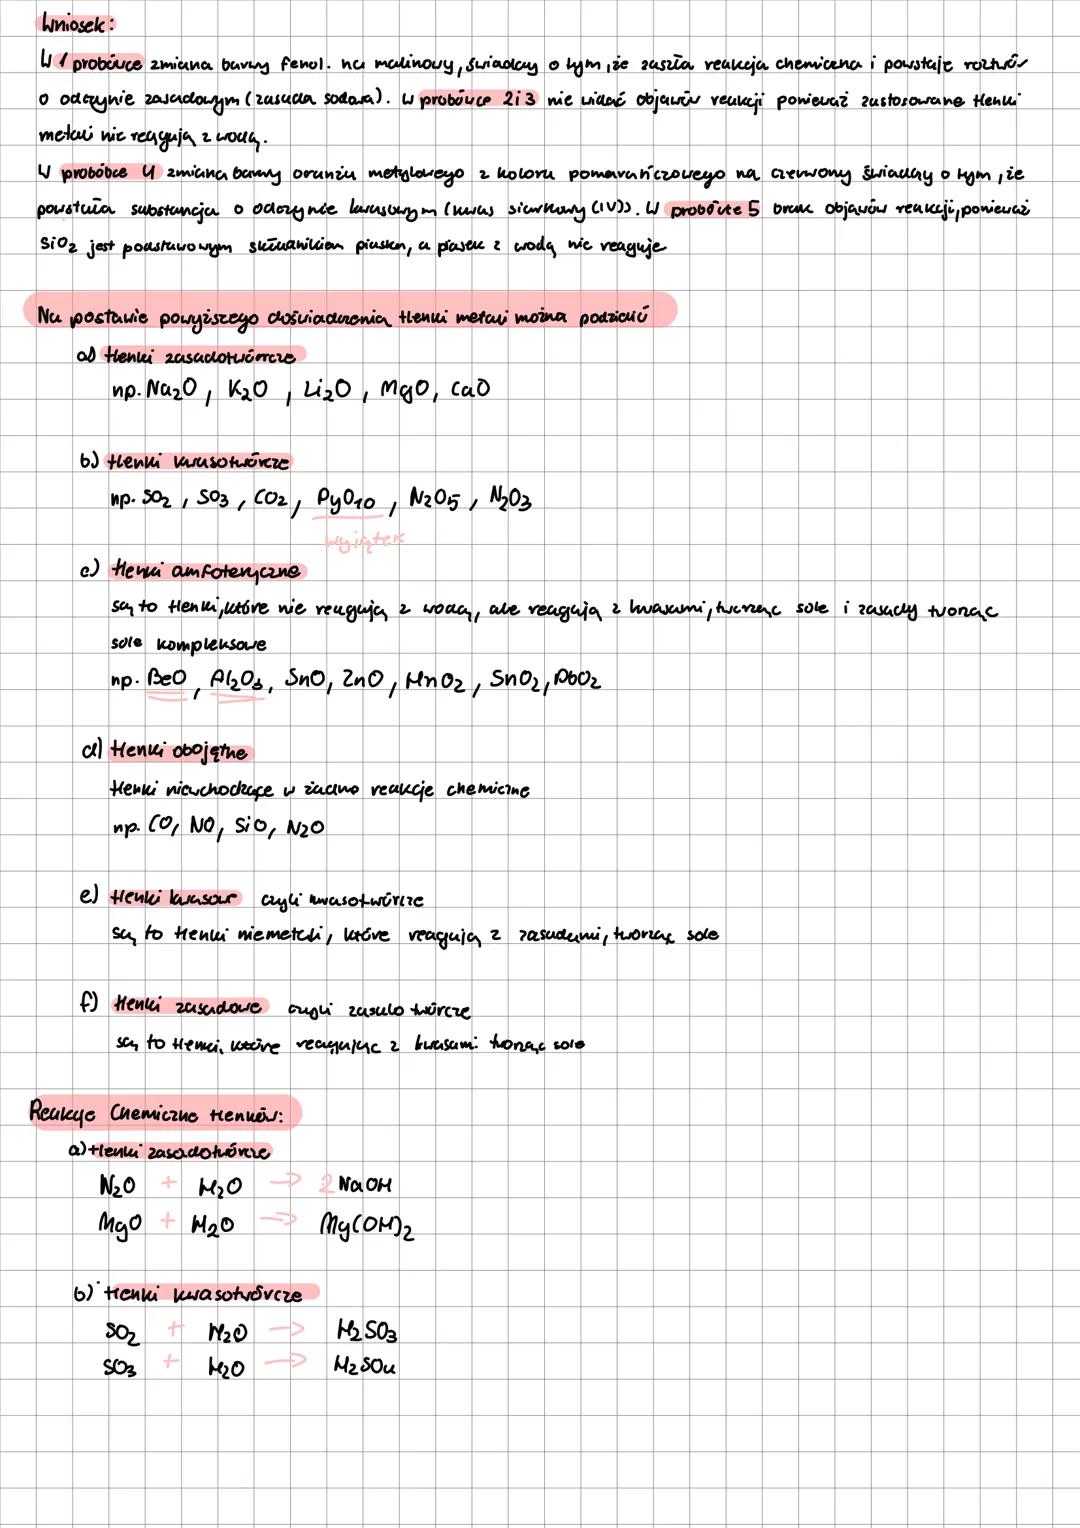 Wniosek:
W 1 probówce zmiana barwy fenol. na malinowy, świadczy o tym, że zaszła reakcja chemiczna i powstaje roztwór
o odczynie zasadowym (zasada sodowa). W probówce 2i3 nie widać objawów reakcji ponieważ zastosowane tlenki
metali nie reagują z wodą.
W probóbce 4 zmiana barwy oranżu metylowego z koloru pomarańczowego na czerwony świadczy o tym, że
powstała substancja o odczynie kwasowym (kwas siarkowy (IV)). W probówce 5 brak objawów reakcji, ponieważ
SiO2 jest podstawowym składnikiem piasku, a piasek z wodą nie reaguje
Na postawie powyższego doświadczenia tlenki metali można podzielić
a) tlenki zasadotwórcze
np. Na2O, K2O, Li2O, MgO, CaO
b) tlenki kwasotwórcze
np. SO2, SO3, CO2, P4O10, N2O5, N2O3
wyjątek
c) tlenki amfoteryczne
są to tlenki, które nie reagują z wodą, ale reagują z kwasami, tworząc sole i zasady tworząc
sole kompleksowe
np. BeO, Al2O3, SnO, ZnO, MnO2, SnO2, PbO2
d) tlenki obojętne
tlenki niewchodzące w żadne reakcje chemiczne
np. CO, NO, SiO, N2O
e) tlenki kwasowe czyli kwasotwórcze
są to tlenki niemetali, które reagują z zasadami, tworząc sole
f) tlenki zasadowe czyli zasadotwórcze
są to tlenki, które reagując z kwasami tworząc sole
Reakcje Chemiczne tlenków:
a) tlenki zasadotwórcze
N2O + H2O → 2 NaOH
MgO + H2O → Mg(OH)2
b) tlenki kwasotwórcze
SO2 + H2O → H2SO3
SO3 + H2O → H2SO4